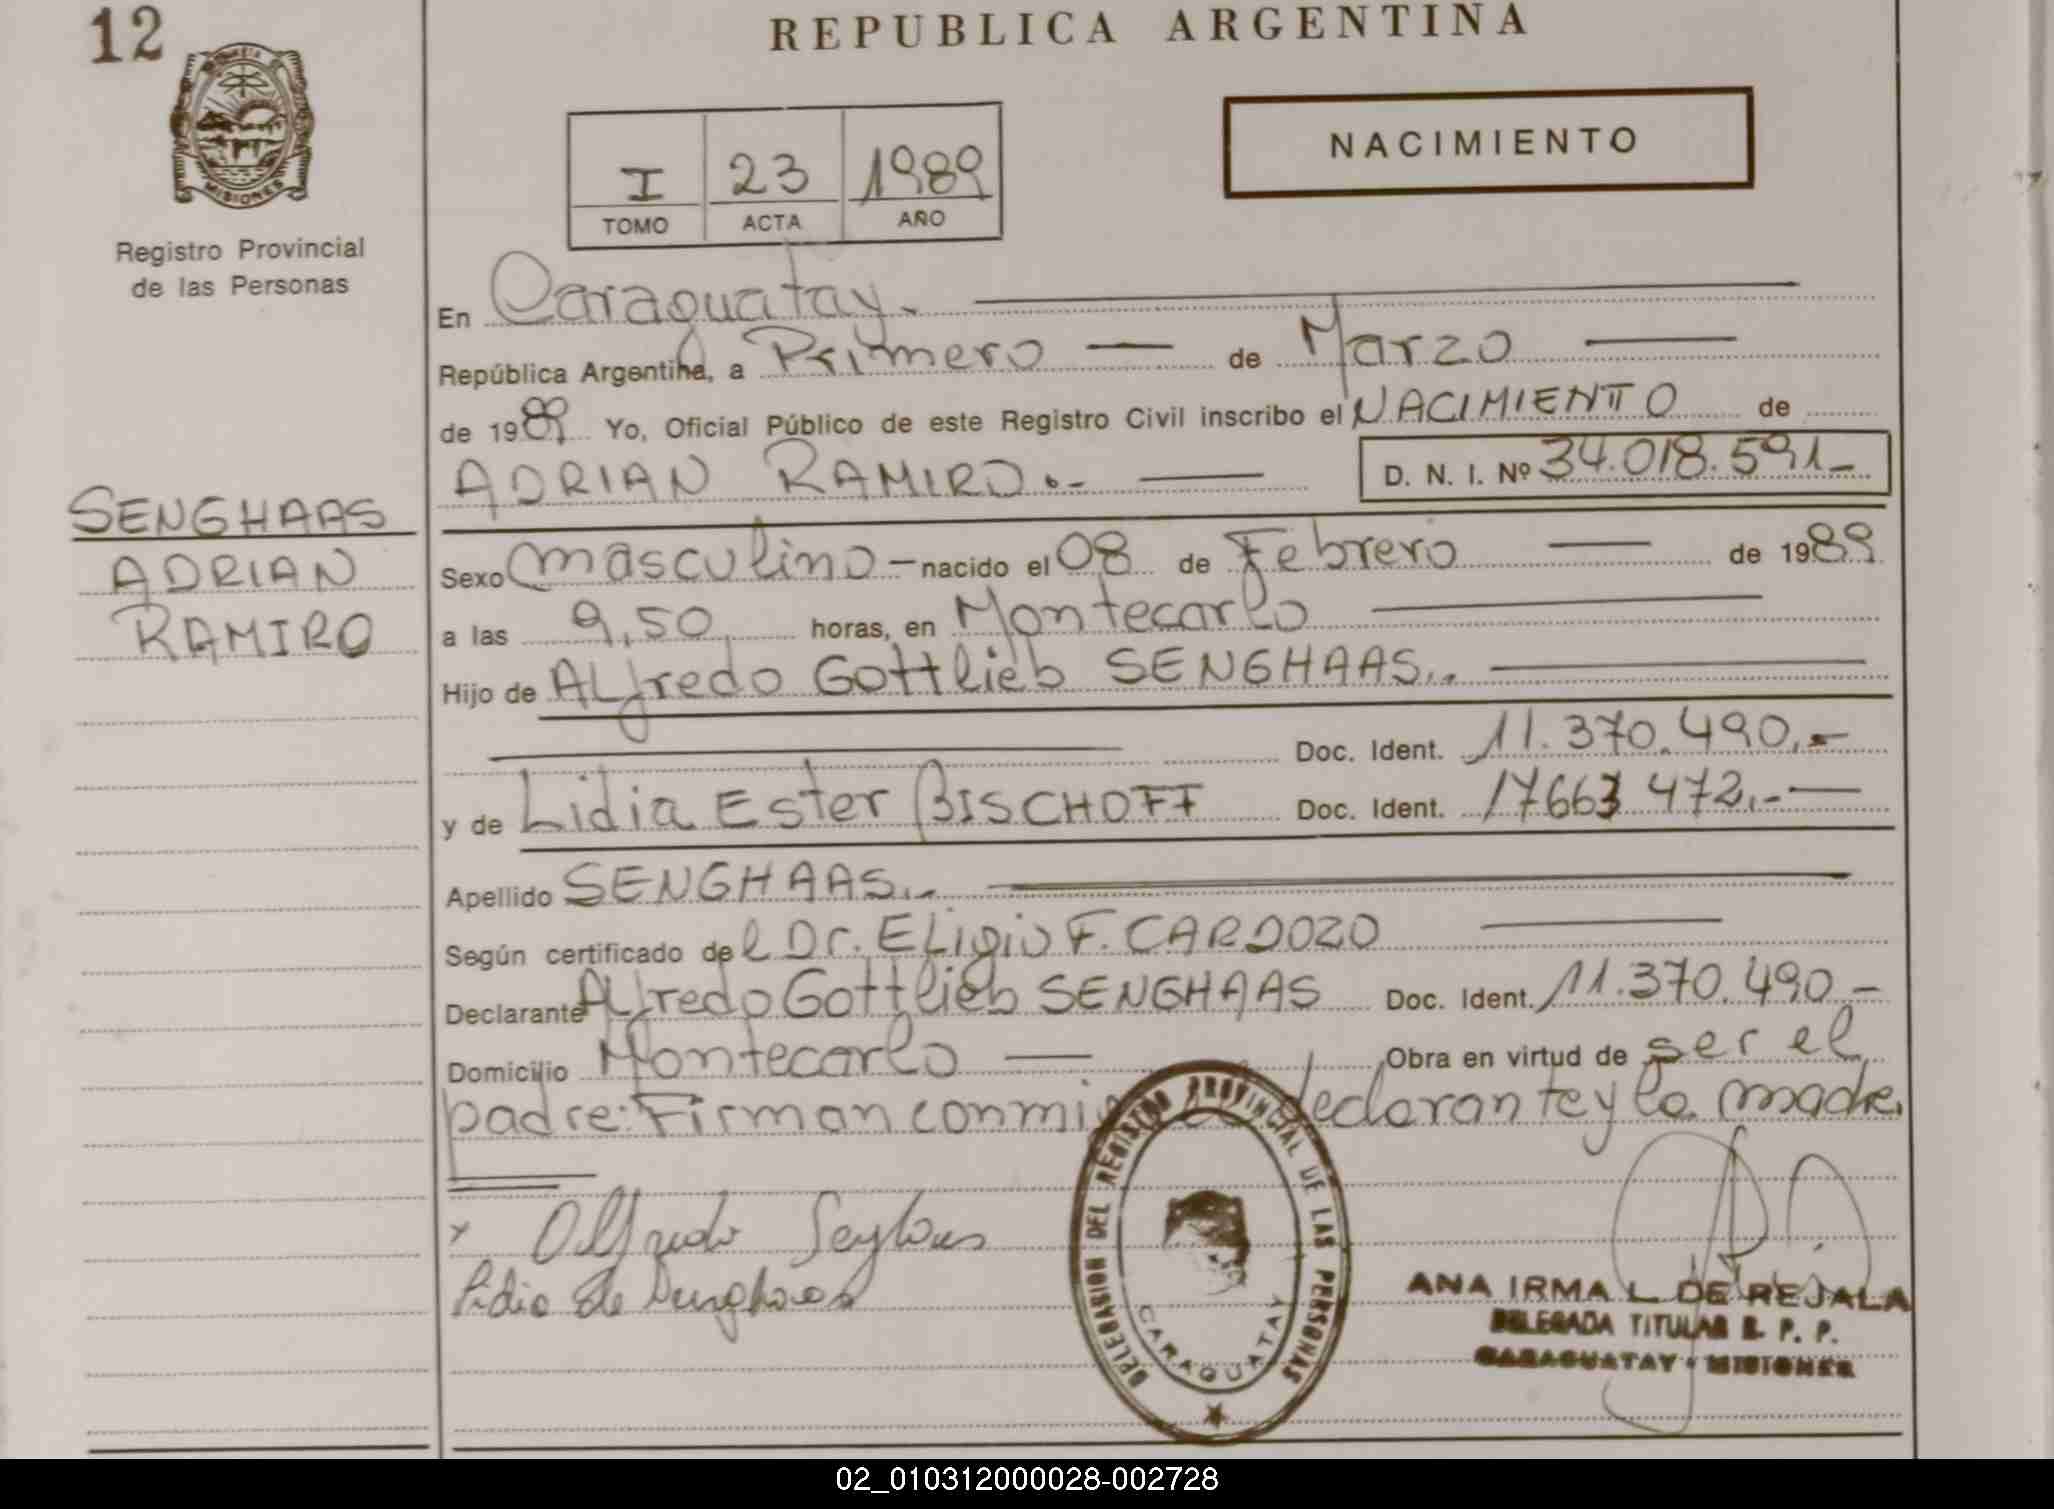 12
REPUBLICA ARGENTINA
META
MISIONES
Registro Provincial
de las Personas
NACIMIENTO
I 23 1989
TOMO ACTA AÑO
En Caraguatay.
República Argentina, a Primero — de Marzo —
de 1989 Yo, Oficial Público de este Registro Civil inscribo el NACIMIENTO de
ADRIAN RAMIRO.- — D. N. I. Nº 34.018.591-
SENGHAAS
ADRIAN
RAMIRO
Sexo masculino - nacido el 08 de Febrero — de 1989
a las 9,50 horas, en Montecarlo —
Hijo de ALfredo Gottlieb SENGHAAS.. —
Doc. Ident. 11.370.490.-
y de Lidia Ester BISCHOFF Doc. Ident. 17663 472.- —
Apellido SENGHAAS.. —
Según certificado del Dr. Eligio F. CARDOZO —
Declarante ALfredo Gottlieb SENGHAAS Doc. Ident. 11.370.490-
Domicilio Montecarlo — Obra en virtud de ser el
padre: Firman conmi declarante y la madre.
DELEGASION DEL REGISTRO PROVINCIAL DE LAS PERSONAS
CARAGUATAY
x Alfredo Senghaas
Lidia de Senghaas
ANA IRMA L. DE REJALA
DELEGADA TITULAR R. P. P.
CARAGUATAY - MISIONES
02_010312000028-002728